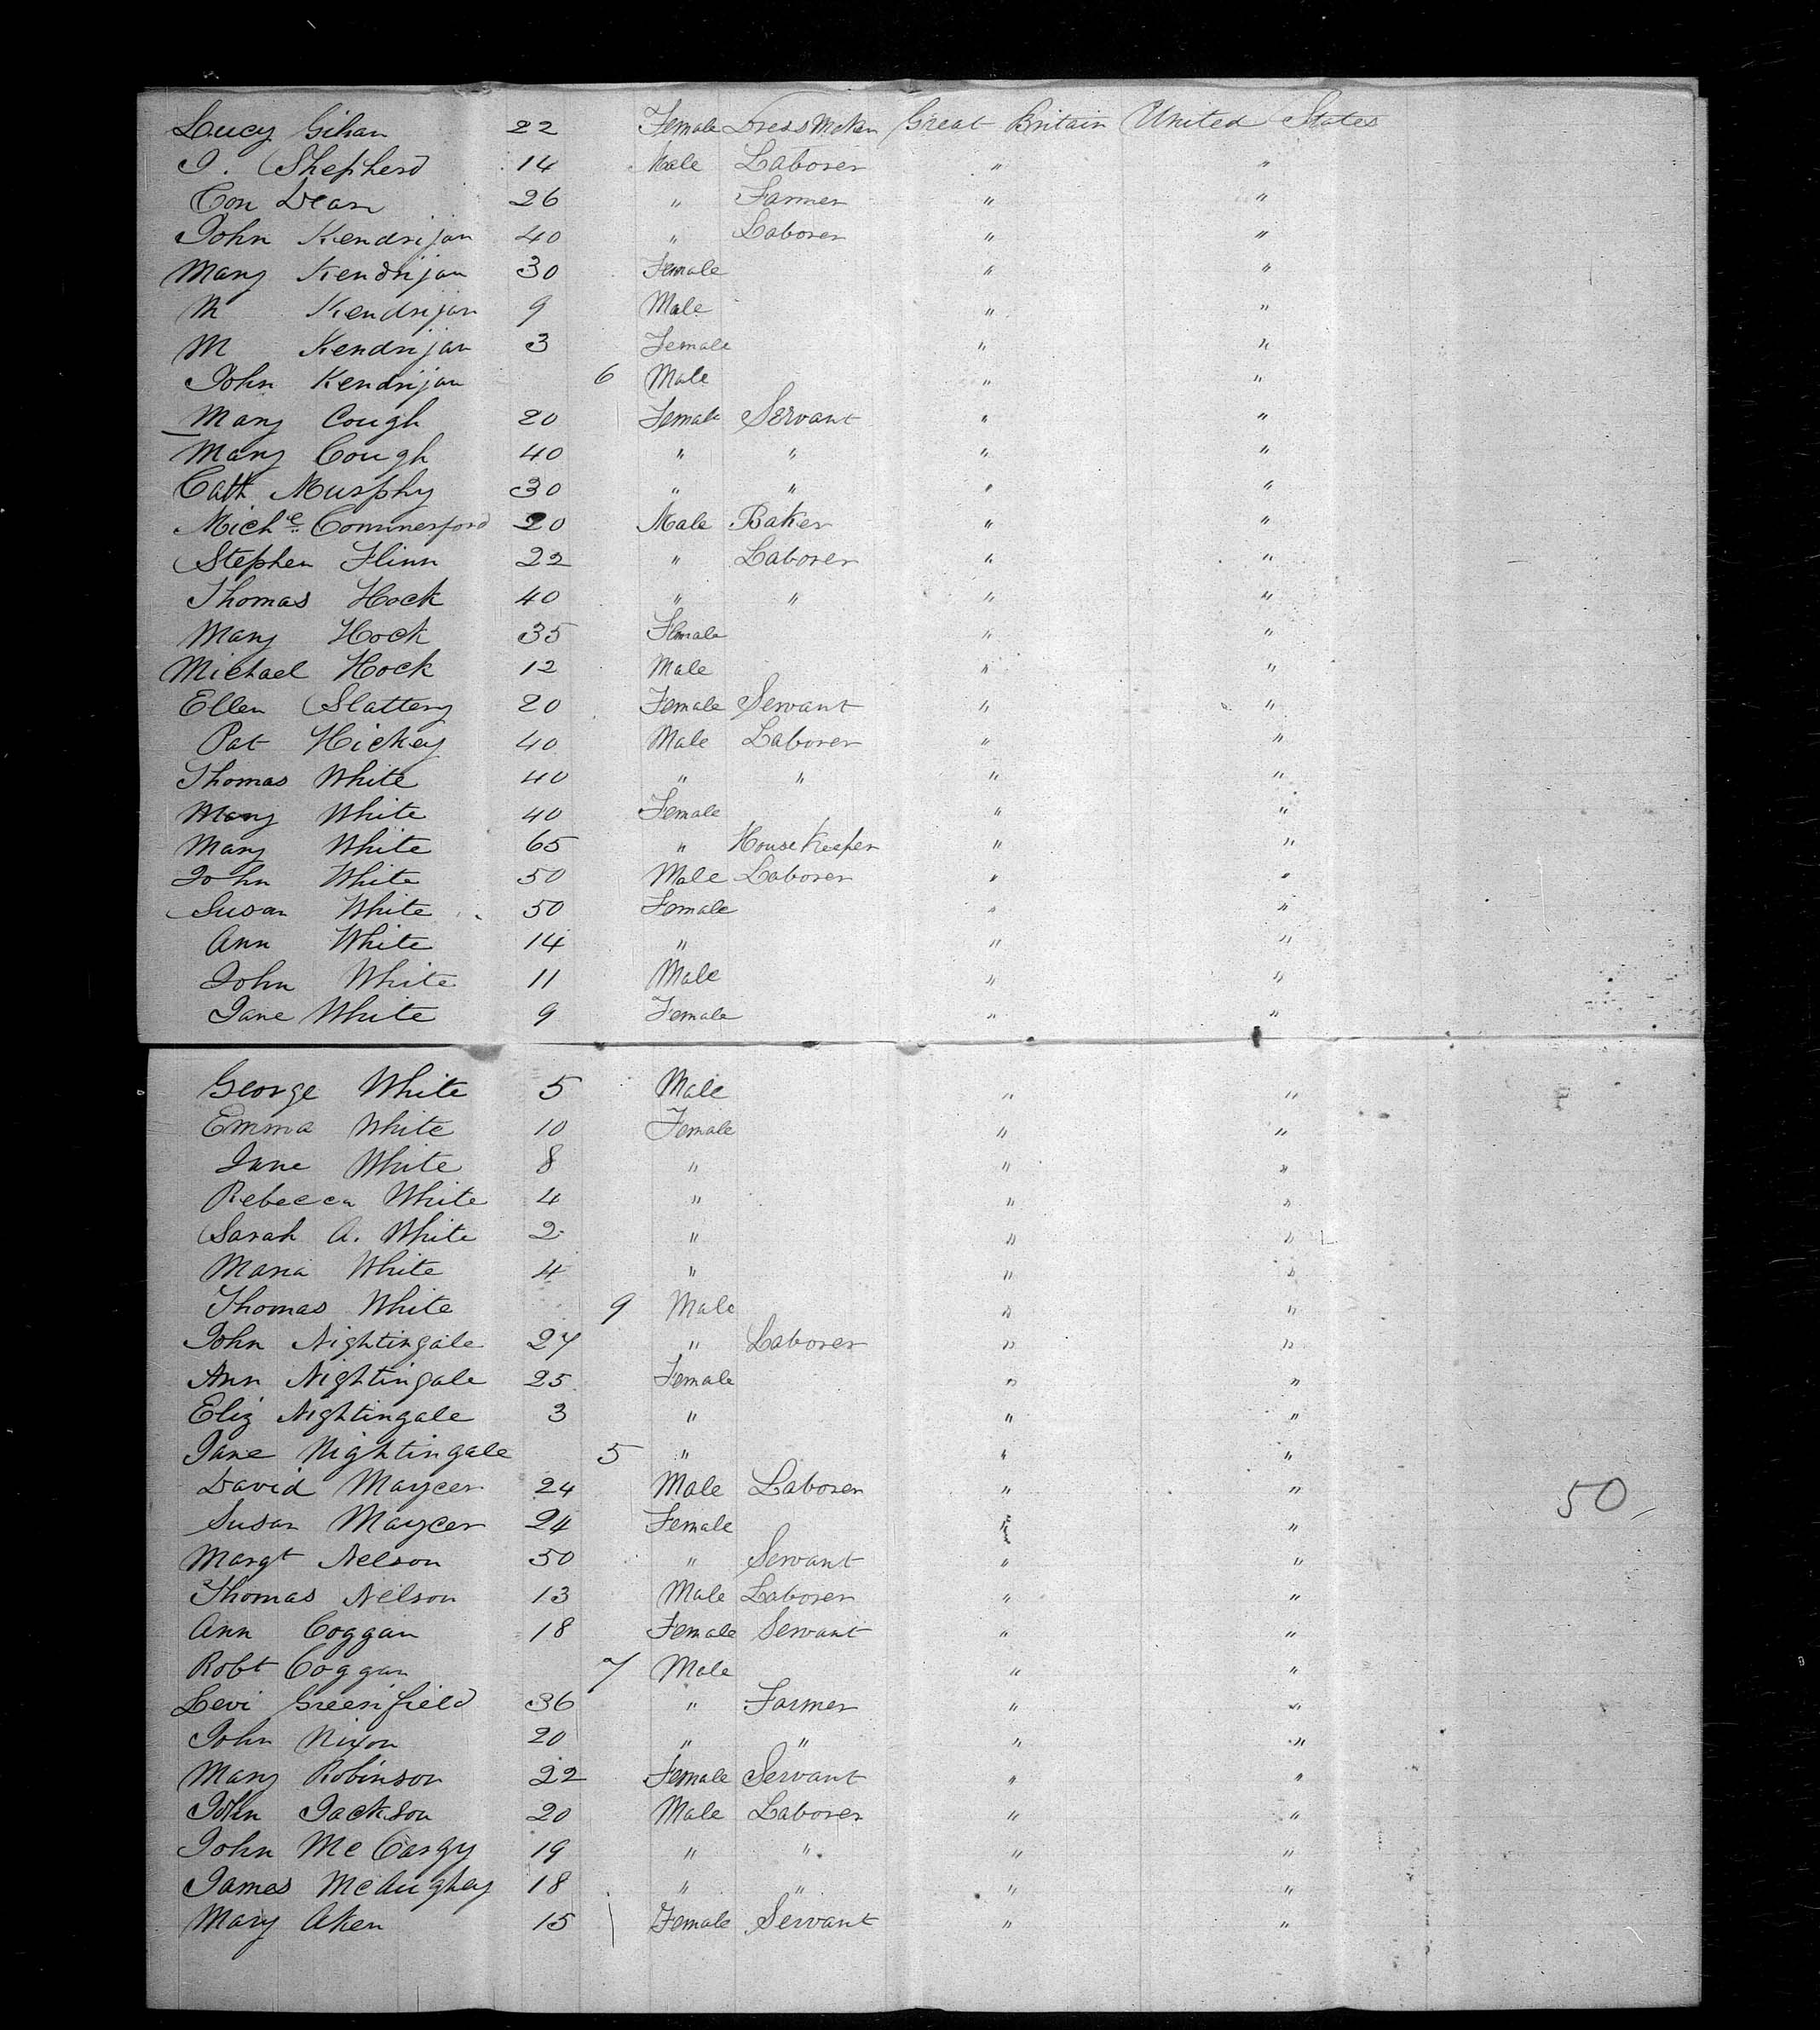 Lucy Gihan 22 Female Dress Maker Great Britain United States
I. Shepherd 14 Male Laborer " "
Con Dean 26 " Farmer " "
John Kendrijan 40 " Laborer " "
Mary Kendrijan 30 Female " "
M Kendrijan 9 Male " "
M Kendrijan 3 Female " "
John Kendrijan 6 Male " "
Mary Cough 20 Female Servant " "
Mary Cough 40 " " " "
Cath Murphy 30 " " " "
Mich.e Commerford 20 Male Baker " "
Stephen Flinn 22 " Laborer " "
Thomas Hock 40 " " " "
Mary Hock 35 Female " "
Michael Hock 12 Male " "
Ellen Slattery 20 Female Servant " "
Pat Hickey 40 Male Laborer " "
Thomas White 40 " " " "
Mary White 40 Female " "
Mary White 65 " House Keeper " "
John White 50 Male Laborer " "
Susan White 50 Female " "
Ann White 14 " " "
John White 11 Male " "
Jane White 9 Female " "
George White 5 Male " "
Emma White 10 Female " "
Jane White 8 " " "
Rebecca White 4 " " "
Sarah A. White 2 " " "
Maria White 4 " " "
Thomas White 9 Male " "
John Nightingale 27 " Laborer " "
Ann Nightingale 25 Female " "
Eliz Nightingale 3 " " "
Jane Nightingale 5 " " "
David Maycer 24 Male Laborer " " 50
Susan Maycer 24 Female " "
Margt Nelson 50 " Servant " "
Thomas Nelson 13 Male Laborer " "
Ann Coggan 18 Female Servant " "
Robt Coggan 7 Male " "
Levi Greenfield 36 " Farmer " "
John Nixon 20 " " " "
Mary Robinson 22 Female Servant " "
John Jackson 20 Male Laborer " "
John McCargy 19 " " " "
James McAughey 18 " " " "
Mary Aken 15 Female Servant " "